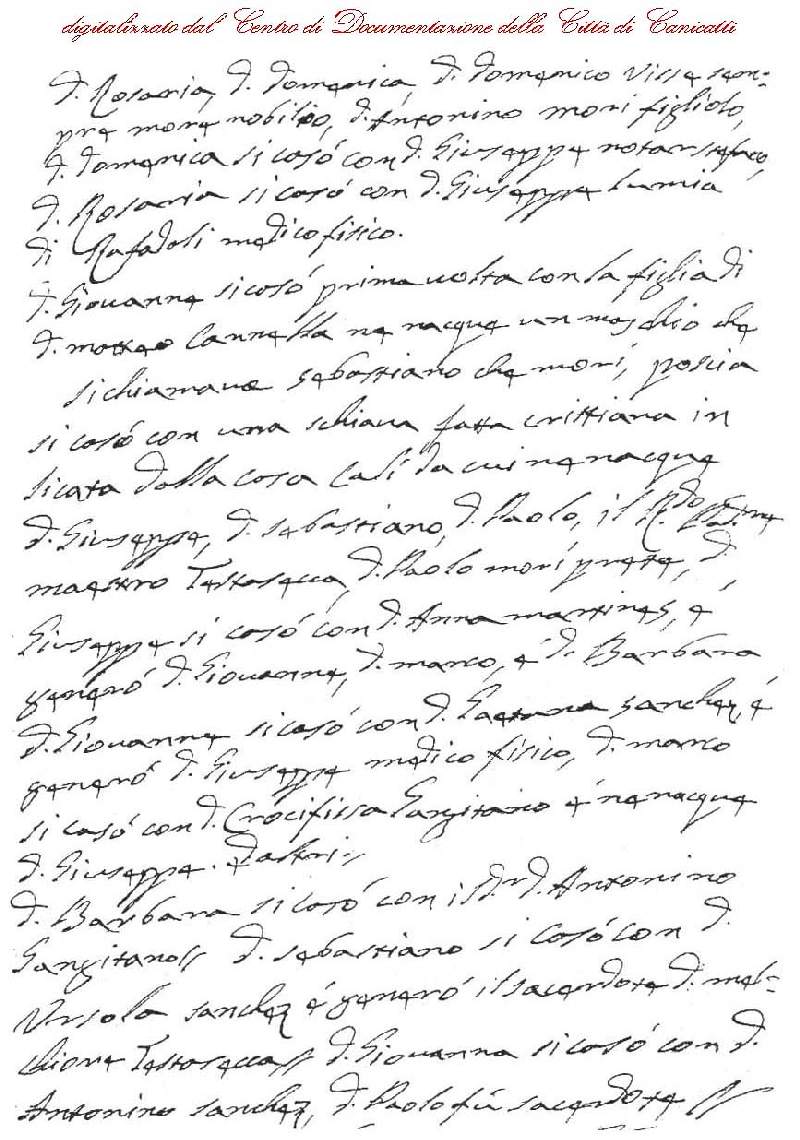 digitalizzato dal Centro di Documentazione della Città di Canicattì
d. Rosaria, d. Domenica, d. Domenico visse sem-
pre more nobilio, d. Antonino morì figliolo,
d. Domenica si casò con d. Giuseppe notar
d. Rosaria si casò con d. Giuseppe Lumia
di Rafadali medico fisico.
d. Giouanne si casò prima uolta con la figlia di
d. Matteo Cannella ne nacque un maschio che
si chiamaua Sebastiano che morì, poscia
si casò con una schiaua fatta cristiana in
licata dalla casa Calì da cui ne nacque
d. Giuseppe, d. Sebastiano, d. Paolo, il R.do
maestro Testasecca, d. Paolo morì prete, d.
Giuseppe si casò con d. Anna Martines, è
generò d. Giouanne, d. Marco, è d. Barbara
d. Giouanne si casò con d. Gaetana Sanchez, è
generò d. Giuseppe medico fisico, d. Marco
si casò con d. Crocifissa Gangitano è ne nacque
d. Giuseppe. ed altri //
d. Barbara si casò con il d. Antonino
Gangitano // d. Sebastiano si casò con d.
Ursola Sanchez è generò il sacerdote d. Mel-
chiore Testasecca // d. Giouanna si casò con d.
Antonino Sanchez, d. Paolo fù sacerdote //